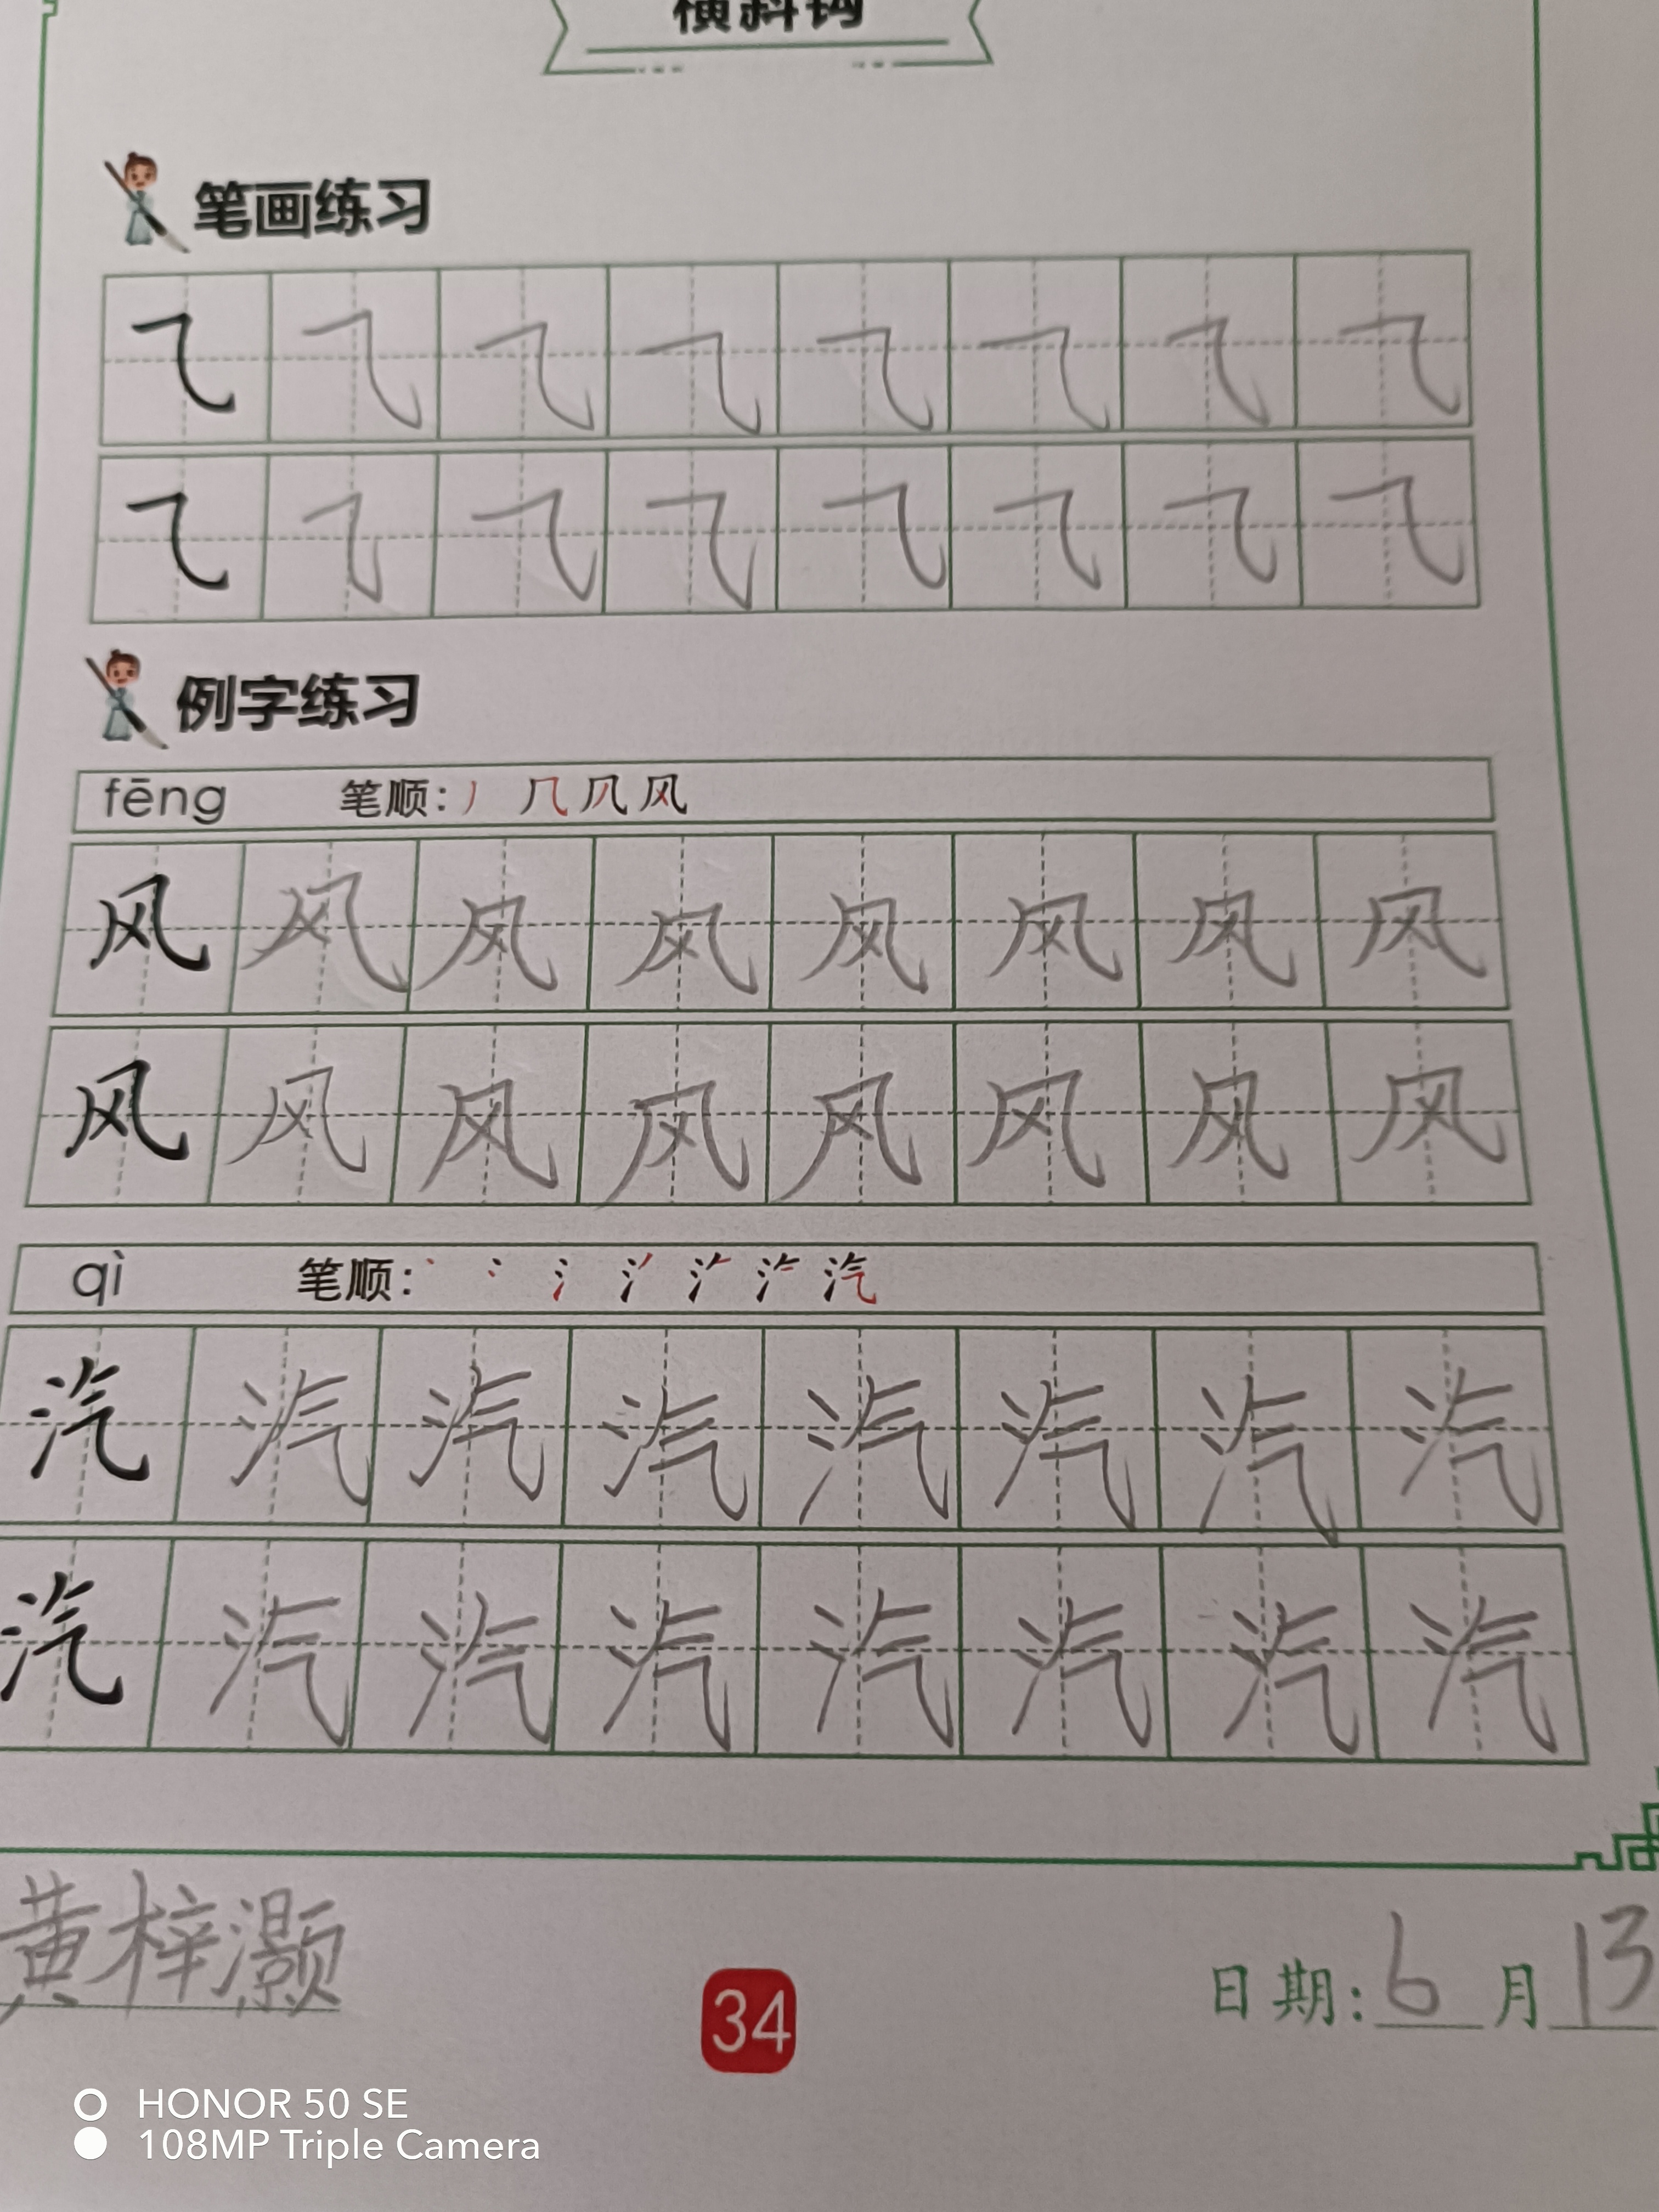 横斜钩
笔画练习
㇈ ㇈ ㇈ ㇈ ㇈ ㇈ ㇈ ㇈
㇈ ㇈ ㇈ ㇈ ㇈ ㇈ ㇈ ㇈
例字练习
fēng 笔顺: 丿 几 凡 风
风 风 风 风 风 风 风 风
风 风 风 风 风 风 风 风
qì 笔顺: 汽
汽 汽 汽 汽 汽 汽 汽 汽
汽 汽 汽 汽 汽 汽 汽 汽
黄梓灏 34 日期: 6 月 13
HONOR 50 SE
108MP Triple Camera